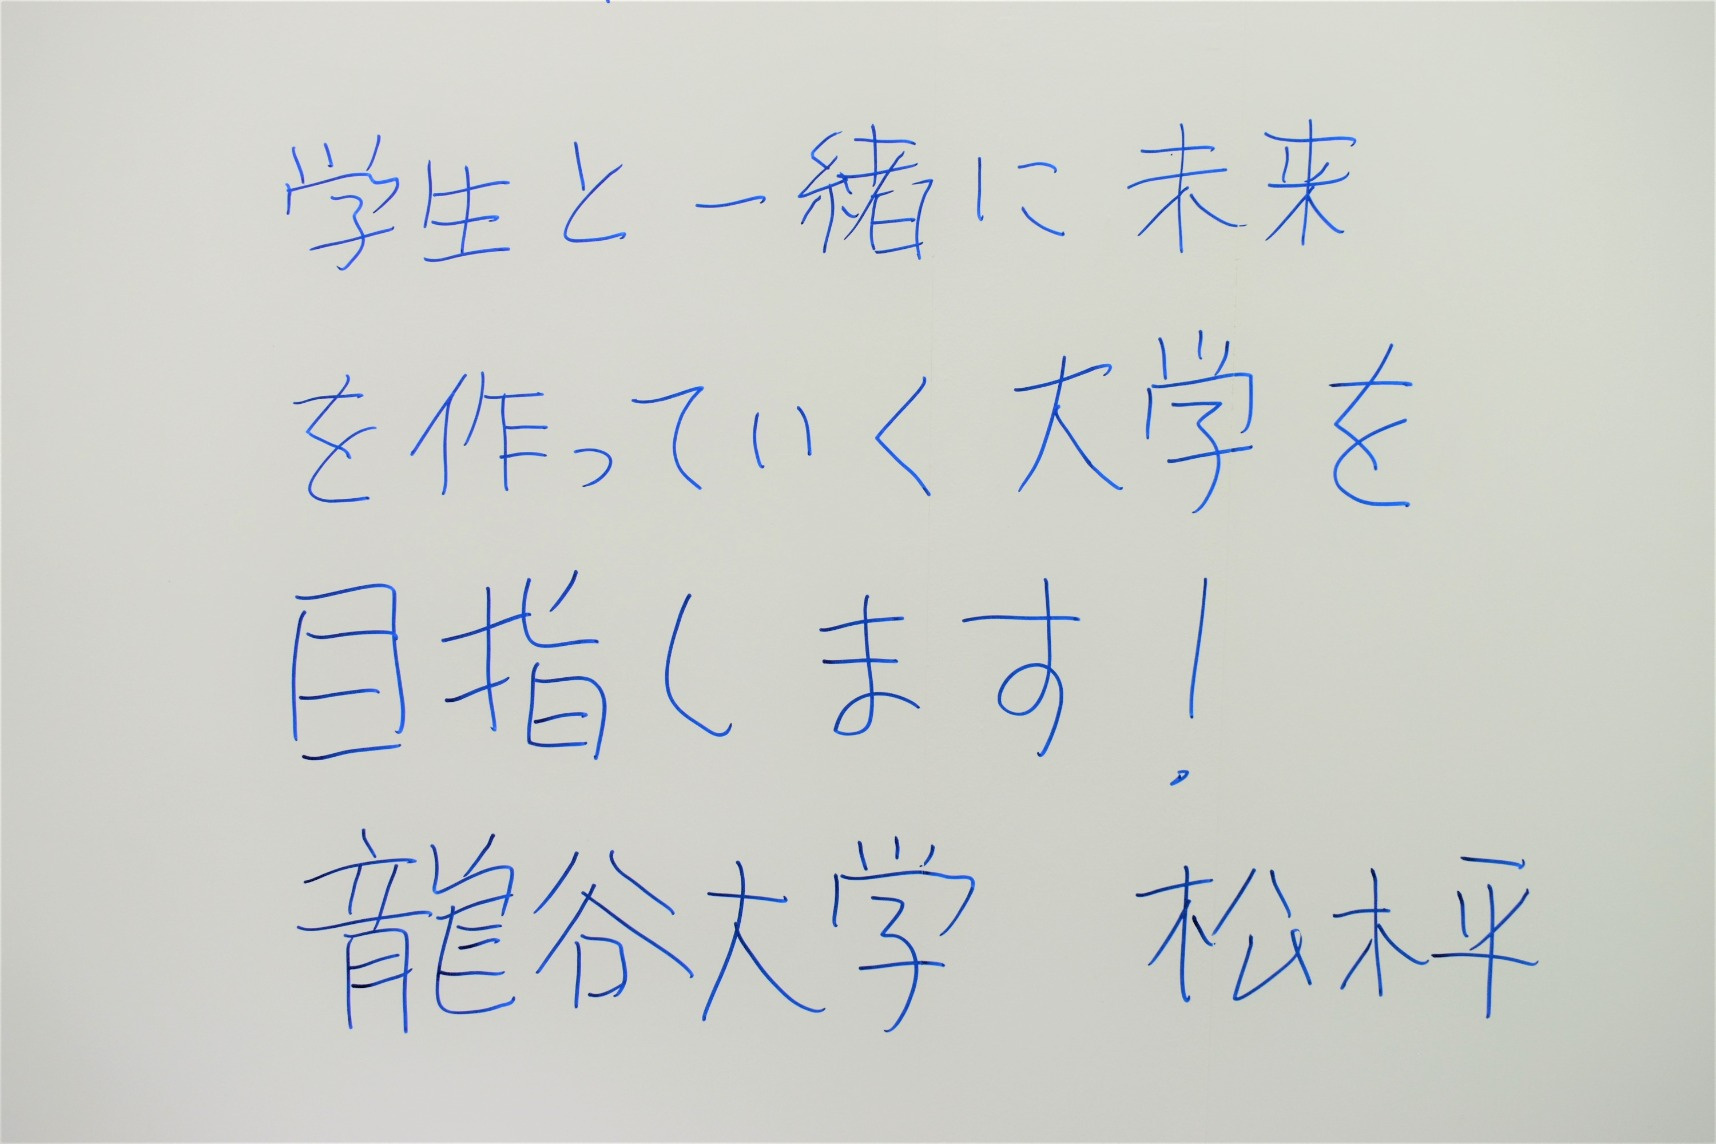 学生と一緒に未来
を作っていく大学を
目指します!
龍谷大学 松木平